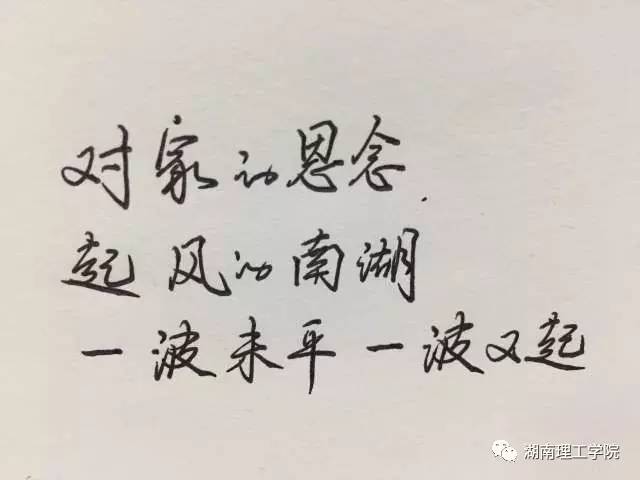 对家的思念
起风的南湖
一波未平一波又起
湖南理工学院